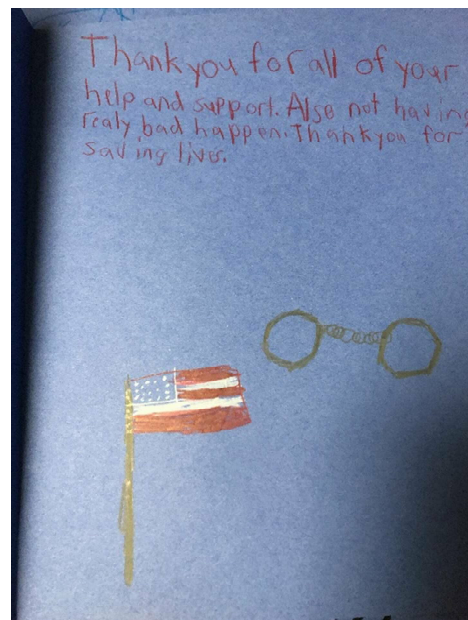 Thank you for all of your
help and support. Also not having
realy bad happen. Thank you for
saving lives.